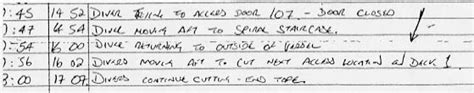 :45 14 52 DIVER GOING TO ACCESS DOOR 107 - DOOR CLOSED
:47 4 54 DIVER MOVING AFT TO SPIRAL STAIRCASE.
:54 16 00 DIVER RETURNING TO OUTSIDE OF VESSEL
:56 16 02 DIVERS MOVING AFT TO CUT NEXT ACCESS LOCATION @ DECK 1
3:00 17 07 DIVERS CONTINUE CUTTING - END TAPE.